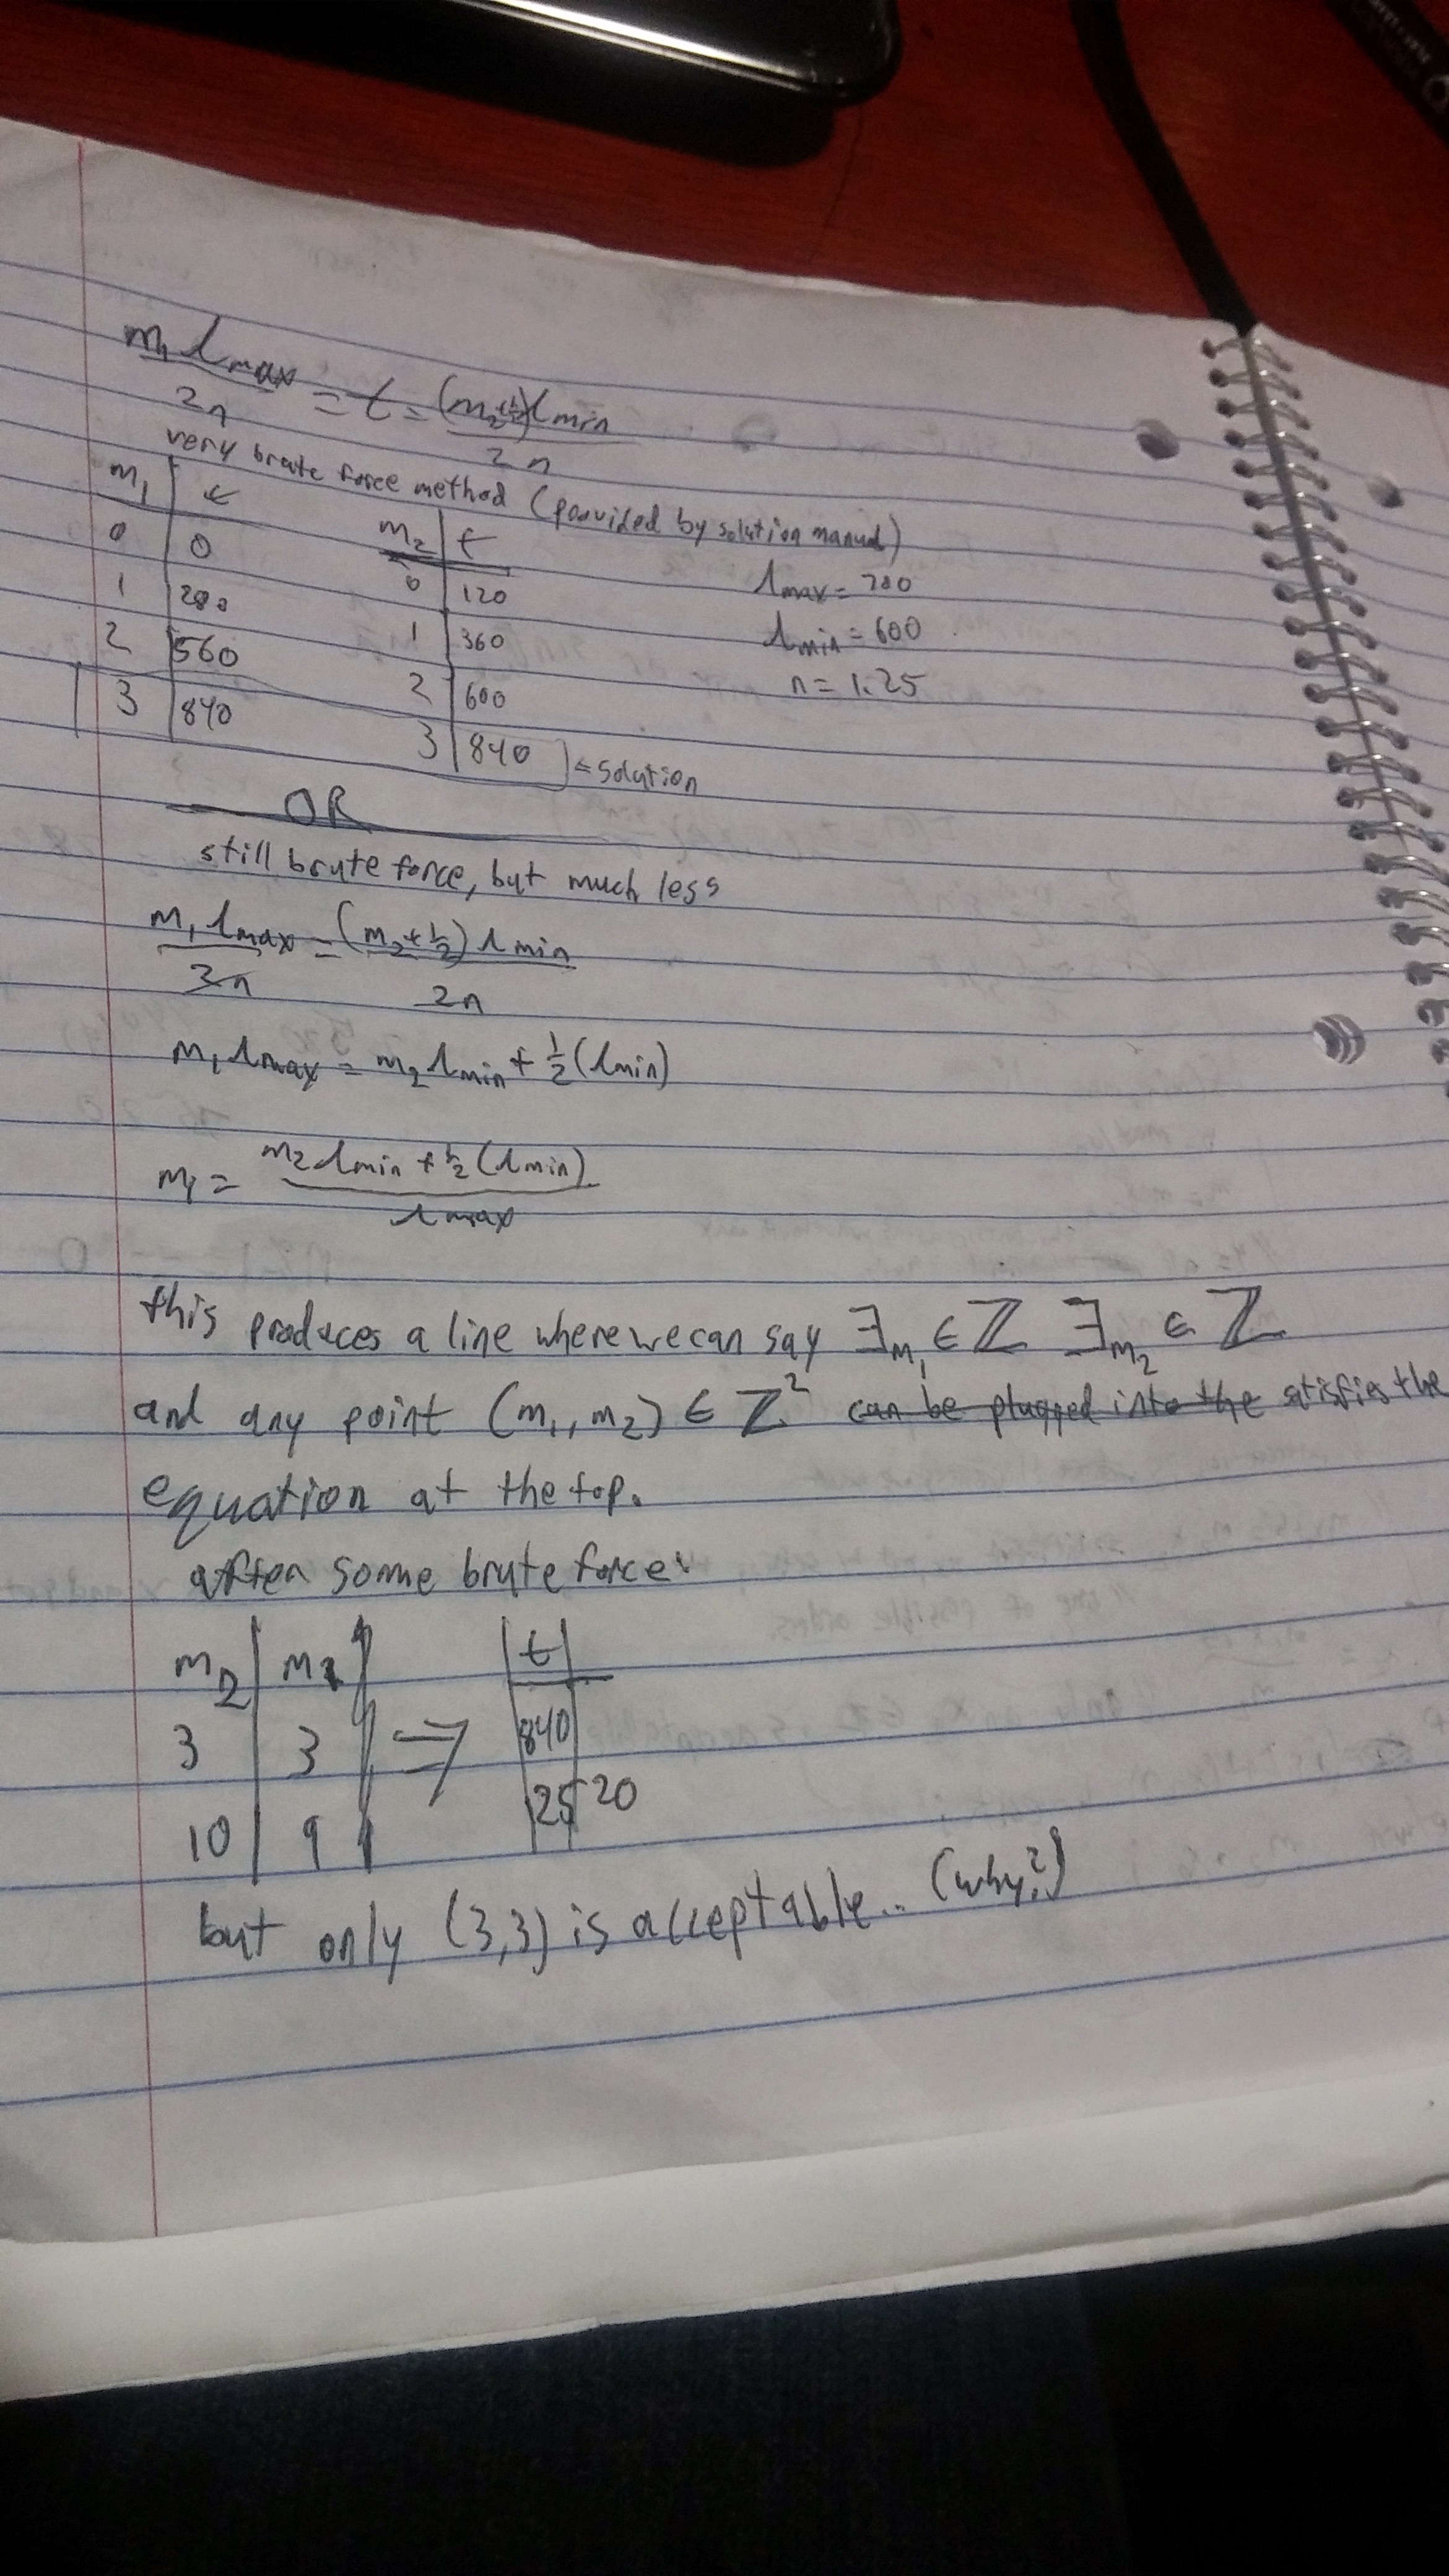 m₁ λmax / 2n = t = (m₂+½)λmin / 2n
very brute force method (porvided by solution manual)
m₁ | t
0 | 0
1 | 280
2 | 560
3 | 840
m₂ | t
0 | 120
1 | 360
2 | 600
3 | 840 ] ⇐ solution
λmax = 700
λmin = 600
n = 1.25
OR
still brute force, but much less
m₁ λmax / 2n = (m₂+½) λmin / 2n
m₁ λmax = m₂ λmin + ½ (λmin)
m₁ = m₂ λmin + ½ (λmin) / λmax
this produces a line where we can say ∃m₁ ∈ ℤ ∃m₂ ∈ ℤ
and any point (m₁, m₂) ∈ ℤ² can be plugged into the satisfies the
equation at the top.
after some brute force:
m₂ | m₁ | t
3 | 3 ⇒ 840
10 | 9 | 2520
but only (3,3) is acceptable.. (why?)